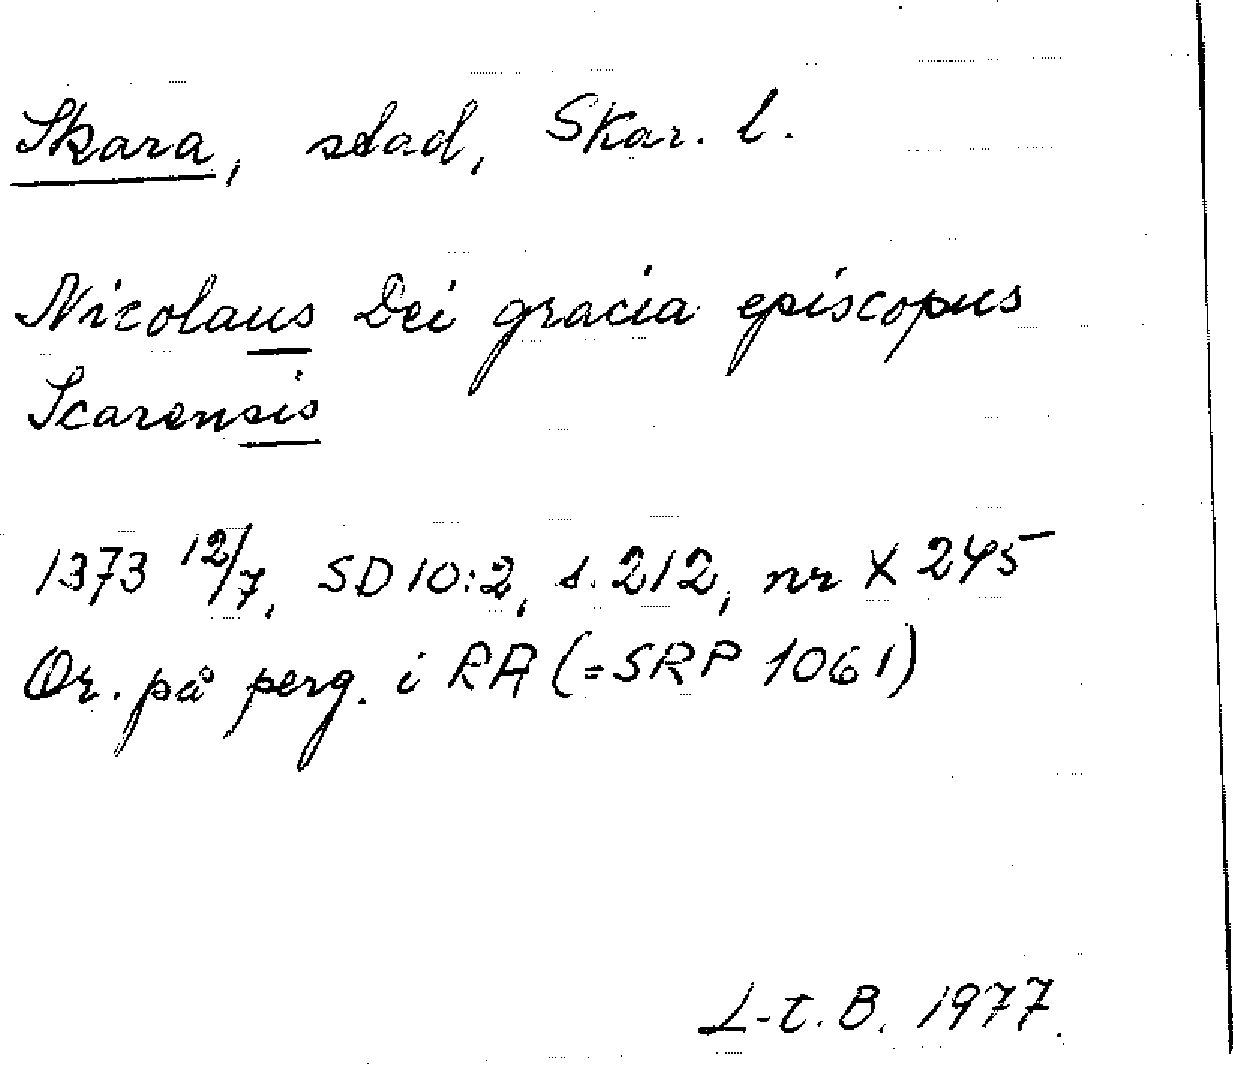 Skara, stad, Skar. l.
Nicolaus Dei gracia episcopus
Scarensis
1373 12/7, SD 10:2, s. 212, nr X 245
Or. på perg. i RA (=SRP 1061)
L-t. B. 1977.